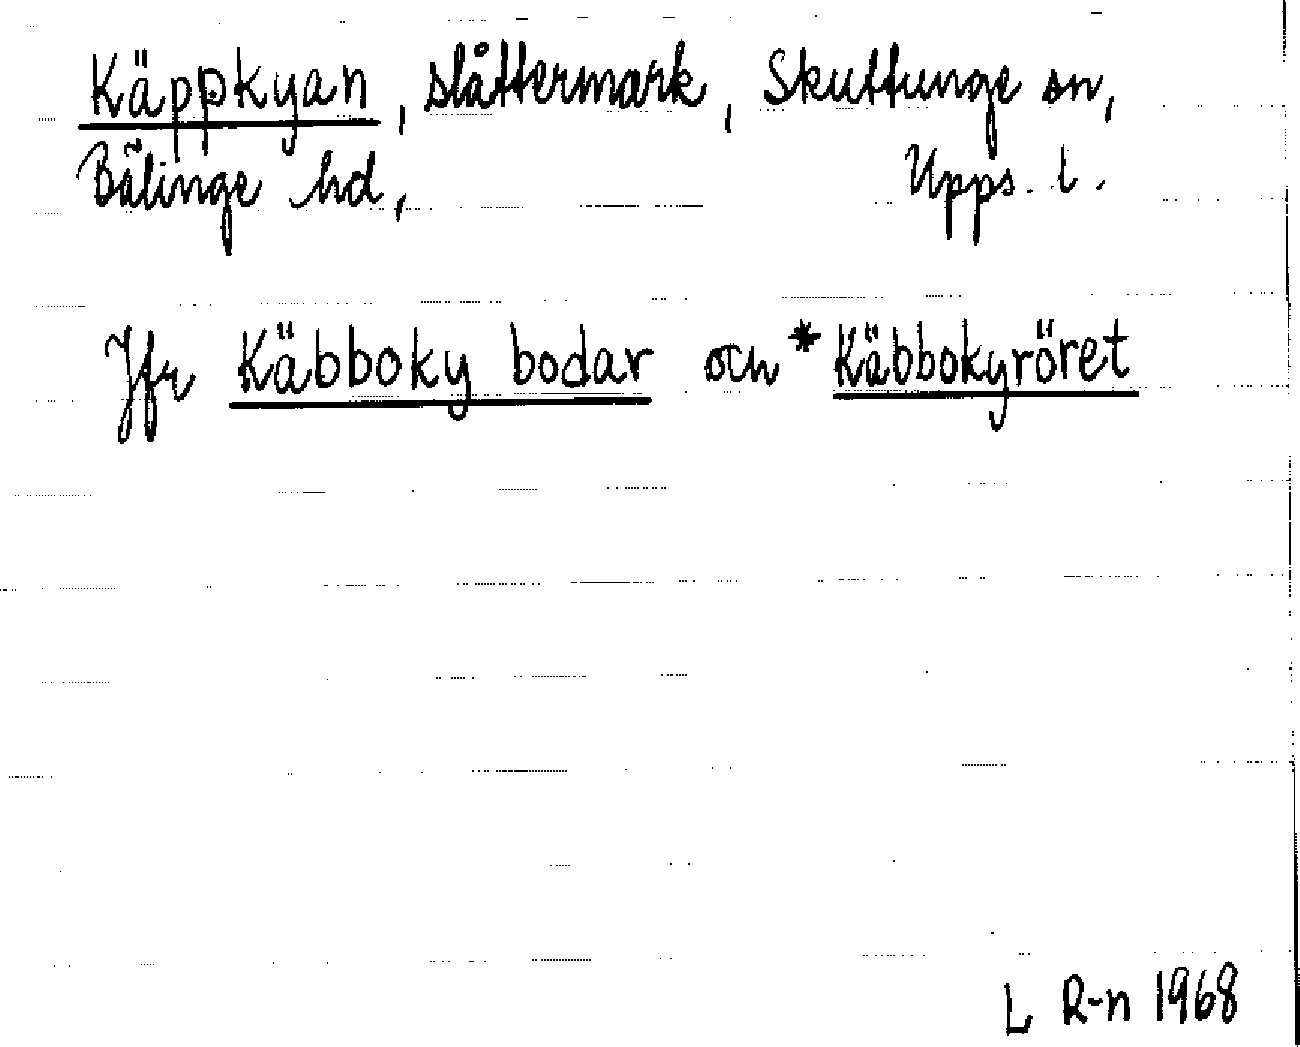 Käppkyan, slåttermark, Skuttunge sn,
Bälinge hd, Upps. l.
Jfr Käbboky bodar och *Käbbokyröret
L R-n 1968